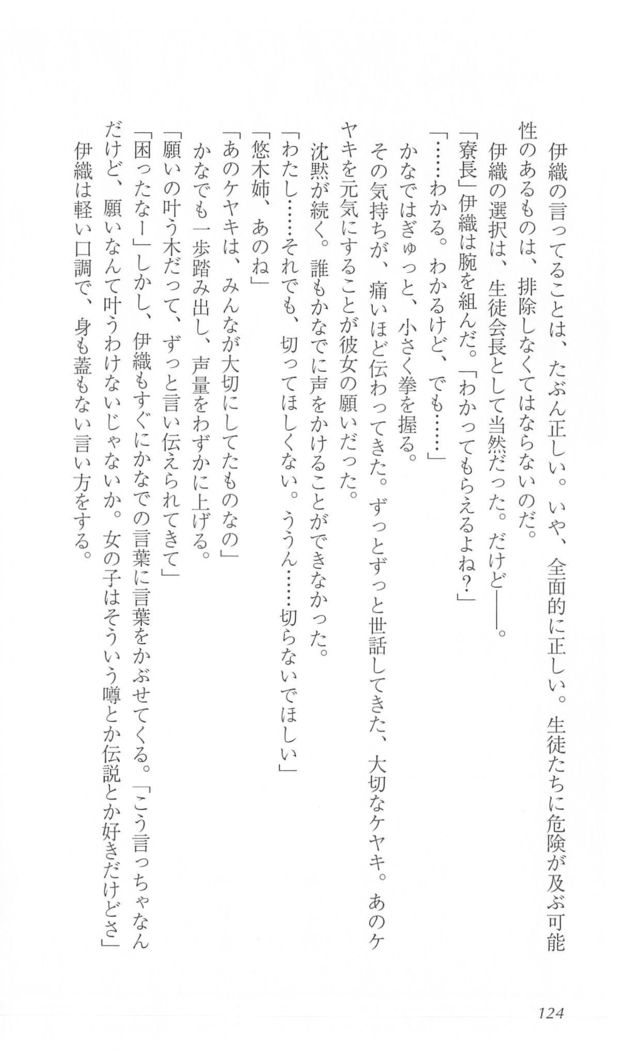 伊織の言ってることは、たぶん正しい。いや、全面的に正しい。生徒たちに危険が及ぶ可能
性のあるものは、排除しなくてはならないのだ。
伊織の選択は、生徒会長として当然だった。だけど――。
「寮長」伊織は腕を組んだ。「わかってもらえるよね？」
「……わかる。わかるけど、でも……」
かなではぎゅっと、小さく拳を握る。
その気持ちが、痛いほど伝わってきた。ずっとずっと世話してきた、大切なケヤキ。あのケ
ヤキを元気にすることが彼女の願いだった。
沈黙が続く。誰もかなでに声をかけることができなかった。
「わたし……それでも、切ってほしくない。ううん……切らないでほしい」
「悠木姉、あのね」
「あのケヤキは、みんなが大切にしてたものなの」
かなでも一歩踏み出し、声量をわずかに上げる。
「願いの叶う木だって、ずっと言い伝えられてきて」
「困ったなー」しかし、伊織もすぐにかなでの言葉に言葉をかぶせてくる。「こう言っちゃなん
だけど、願いなんて叶うわけないじゃないか。女の子はそういう噂とか伝説とか好きだけどさ」
伊織は軽い口調で、身も蓋もない言い方をする。
124